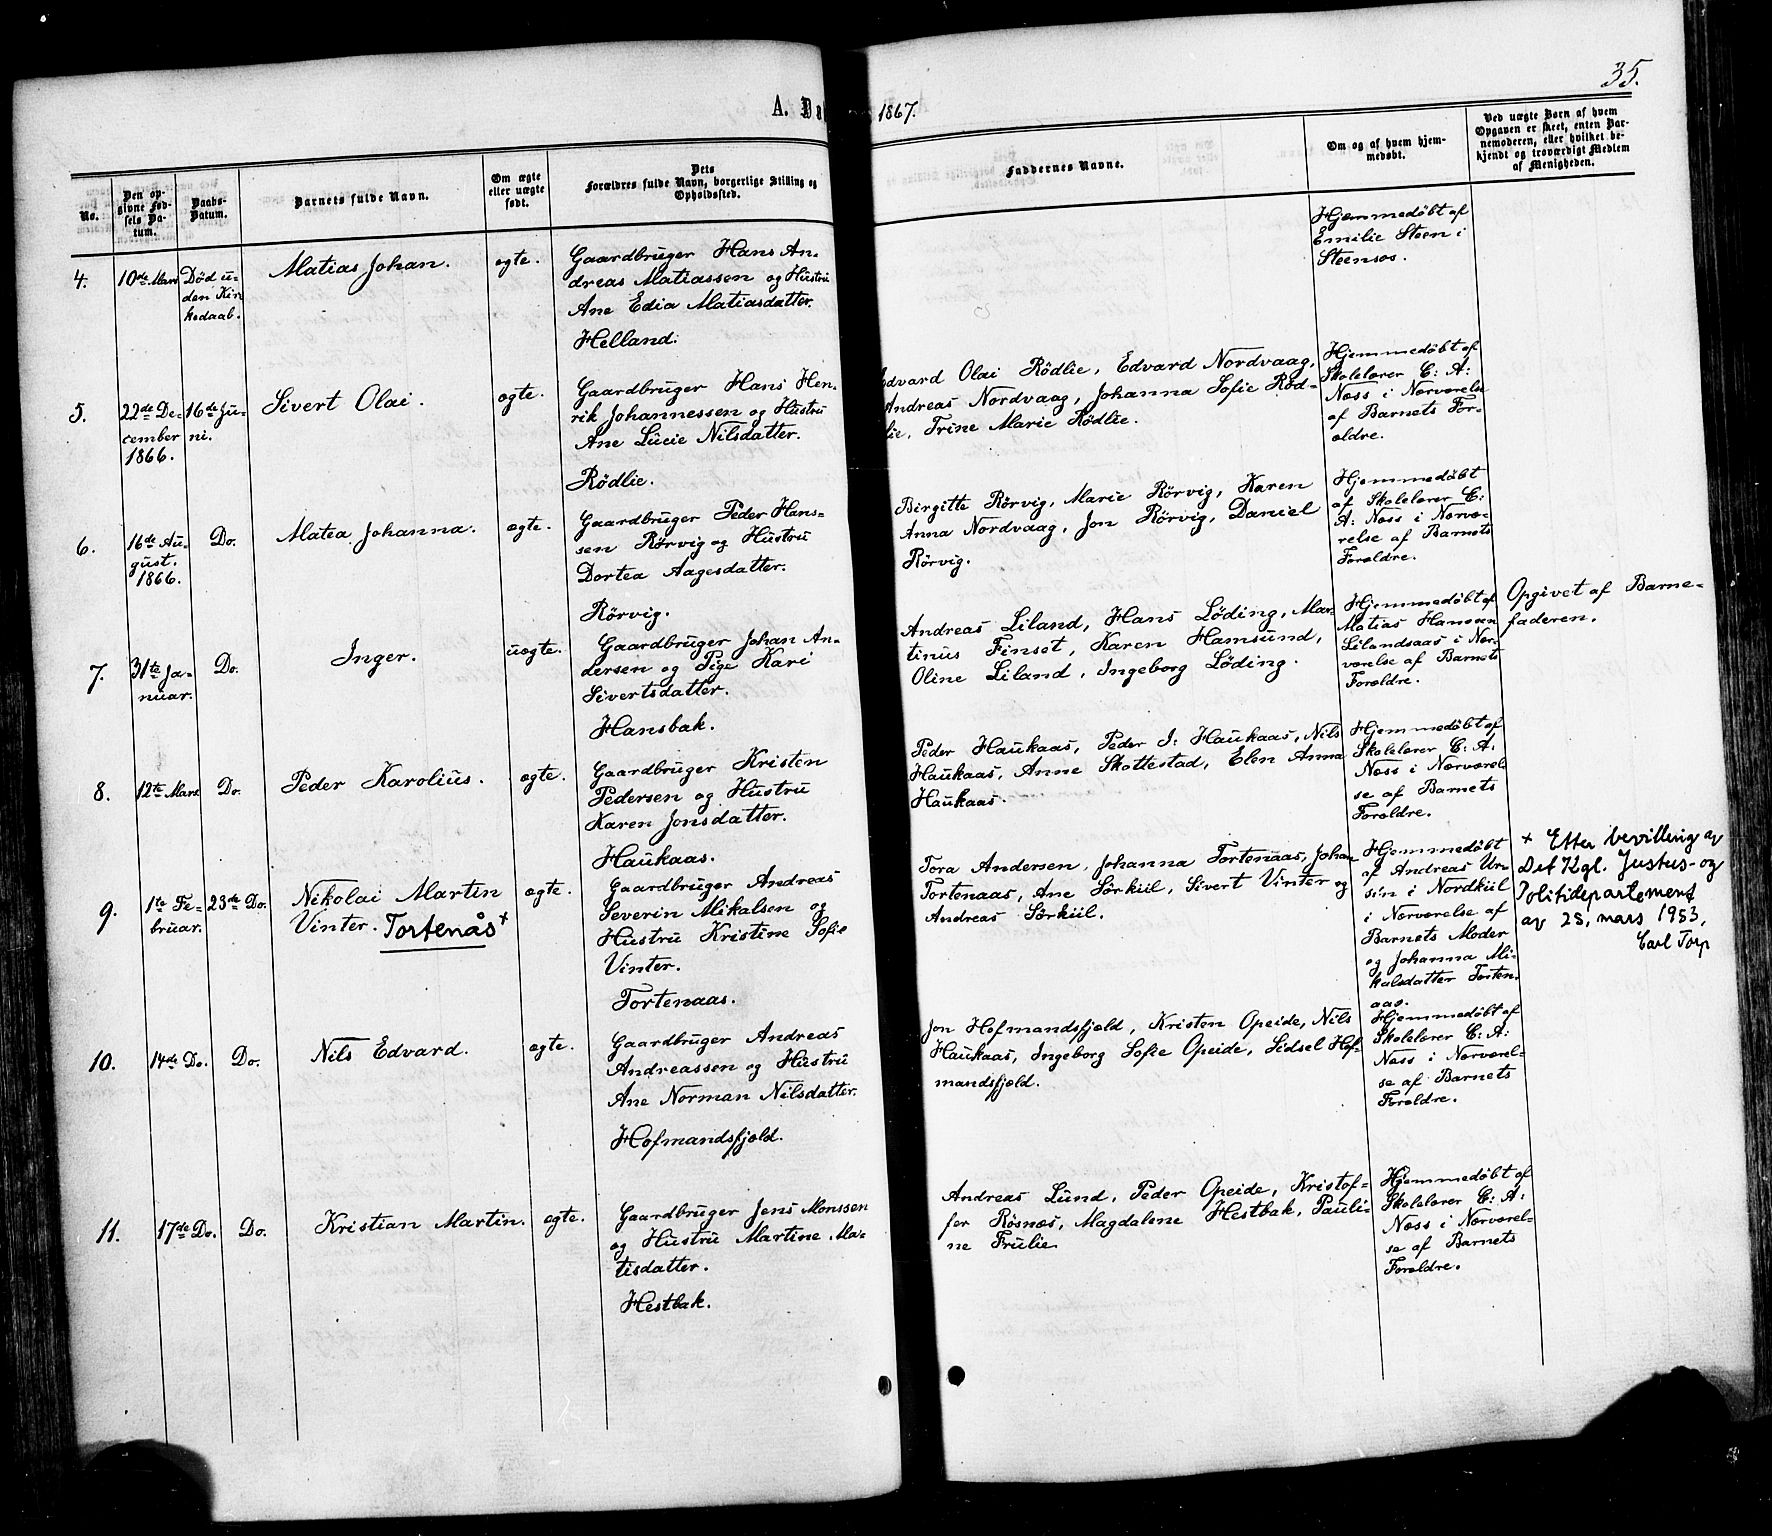 35.
A. Dø 1867.
No.
Den op-
givne Fød-
sels Da-
tum.
Daabs-
Datum.
Barnets fulde Navn.
Om ægte
eller uægte
født.
Dets
Forældres fulde Navn, borgerlige Stilling og
Opholdssted.
Faddernes Navne.
Om og af hvem hjem-
medøbt.
Ved uægte Børn af hvem
Opgaven er skeet, enten Bar-
nemoderen, eller hvilket be-
kjendt og troværdigt Medlem
af Menigheden.
4.
10de Mars
Død u-
den Kir
kedaab.
Matias Johan.
ægte.
Gaardbruger Hans An-
dreas Matiassen og Hustru
Ane Edia Matiasdatter.
Helland.
Hjemmedøbt af
Emilie Steen i
Steensøs.
5.
22de De-
cember
1866.
16de Ju-
ni.
Sivert Olai.
ægte.
Gaardbruger Hans Hen-
rik Johannessen og Hustru
Ane Lucie Nilsdatter.
Rödlie.
Edvard Olai Rödlie, Edvard Nordvaag,
Andreas Nordvaag, Johanna Sofie Röd-
lie, Trine Marie Rödlie.
Hjemmedøbt af
Skolelærer C: A:
Næss i Nærværelse
af Barnets For-
ældre.
6.
16de Au-
gust.
1866.
Do.
Matea Johanna.
ægte.
Gaardbruger Peder Hans-
sen Rörvig og Hustru
Dortea Aagesdatter.
Rörvig.
Birgitte Rörvig, Marie Rörvig, Karen
Anna Nordvaag, Jon Rörvig, Daniel
Rörvig.
Hjemmedøbt
af Skolelærer C:
A: Næss i Nærvæ-
relse af Barnets
Forældre.
7.
31te Ja-
nuar.
Do.
Inger.
uægte.
Gaardbruger Johan An-
dersen og Pige Kari
Sivertsdatter.
Hansbak.
Andreas Liland, Hans Löding, Mar-
tinus Finset, Karen Hamsund,
Oline Liland, Ingeborg Löding.
Hjemmedøbt af
Matias Hansen
Lilandsaas i Nær-
værelse af Barnets
Forældre.
Opgivet af Barne-
faderen.
8.
12te Mars
Do.
Peder Karolius.
ægte.
Gaardbruger Kristen
Pedersen og Hustru
Karen Jonsdatter.
Haukaas.
Peder Haukaas, Peder J: Haukaas, Nils
Haukaas, Anne Skottestad, Elen Anna
Haukaas.
Hjemmedøbt af
Skolelærer C: A:
Næss i Nærværel
se af Barnets
Forældre.
9.
1te Fe-
bruar.
23de Do.
Nikolai Martin
Vinter. Tortenås +
ægte.
Gaardbruger Andreas
Severin Mikalsen og
Hustru Kristine Sofie
Vinter.
Tortenaas.
Tora Andersen, Johanna Tortenaas, Johan
Tortenaas, Ane Sörkiil, Sivert Vinter og
Andreas Sörkiil.
Hjemmedøbt
af Andreas Ur-
sin i Nordkiil
i Nærværelse af
Barnets Moder
og Johanna Mi-
kalsdatter Torten-
aas.
+ Etter bevilling av
Det Kgl. Justis- og
Politidepartement
av 25. mars 1953,
Carl Torp
10.
14de Do.
Do.
Nils Edvard.
ægte.
Gaardbruger Andreas
Andreassen og Hustru
Ane Norman Nilsdatter.
Hofmandsfjæld.
Jon Hofmandsfjæld, Kristen Opeide, Nils
Haukaas, Ingeborg Sofie Opeide, Sidsel Hof-
mandsfjæld.
Hjemmedøbt af
Skolelærer C: A:
Næss i Nærværel-
se af Barnets
Forældre.
11.
17de Do.
Do.
Kristian Martin.
ægte.
Gaardbruger Jens Monssen
og Hustru Martine Ma-
tisdatter.
Hestbak.
Andreas Lund, Peder Opeide, Kristof-
fer Rösnæs, Magdalene Hestbak, Pauli-
ne Frulie.
Hjemmedøbt af
Skolelærer C: A:
Næss i Nærværel-
se af Barnets
Forældre.